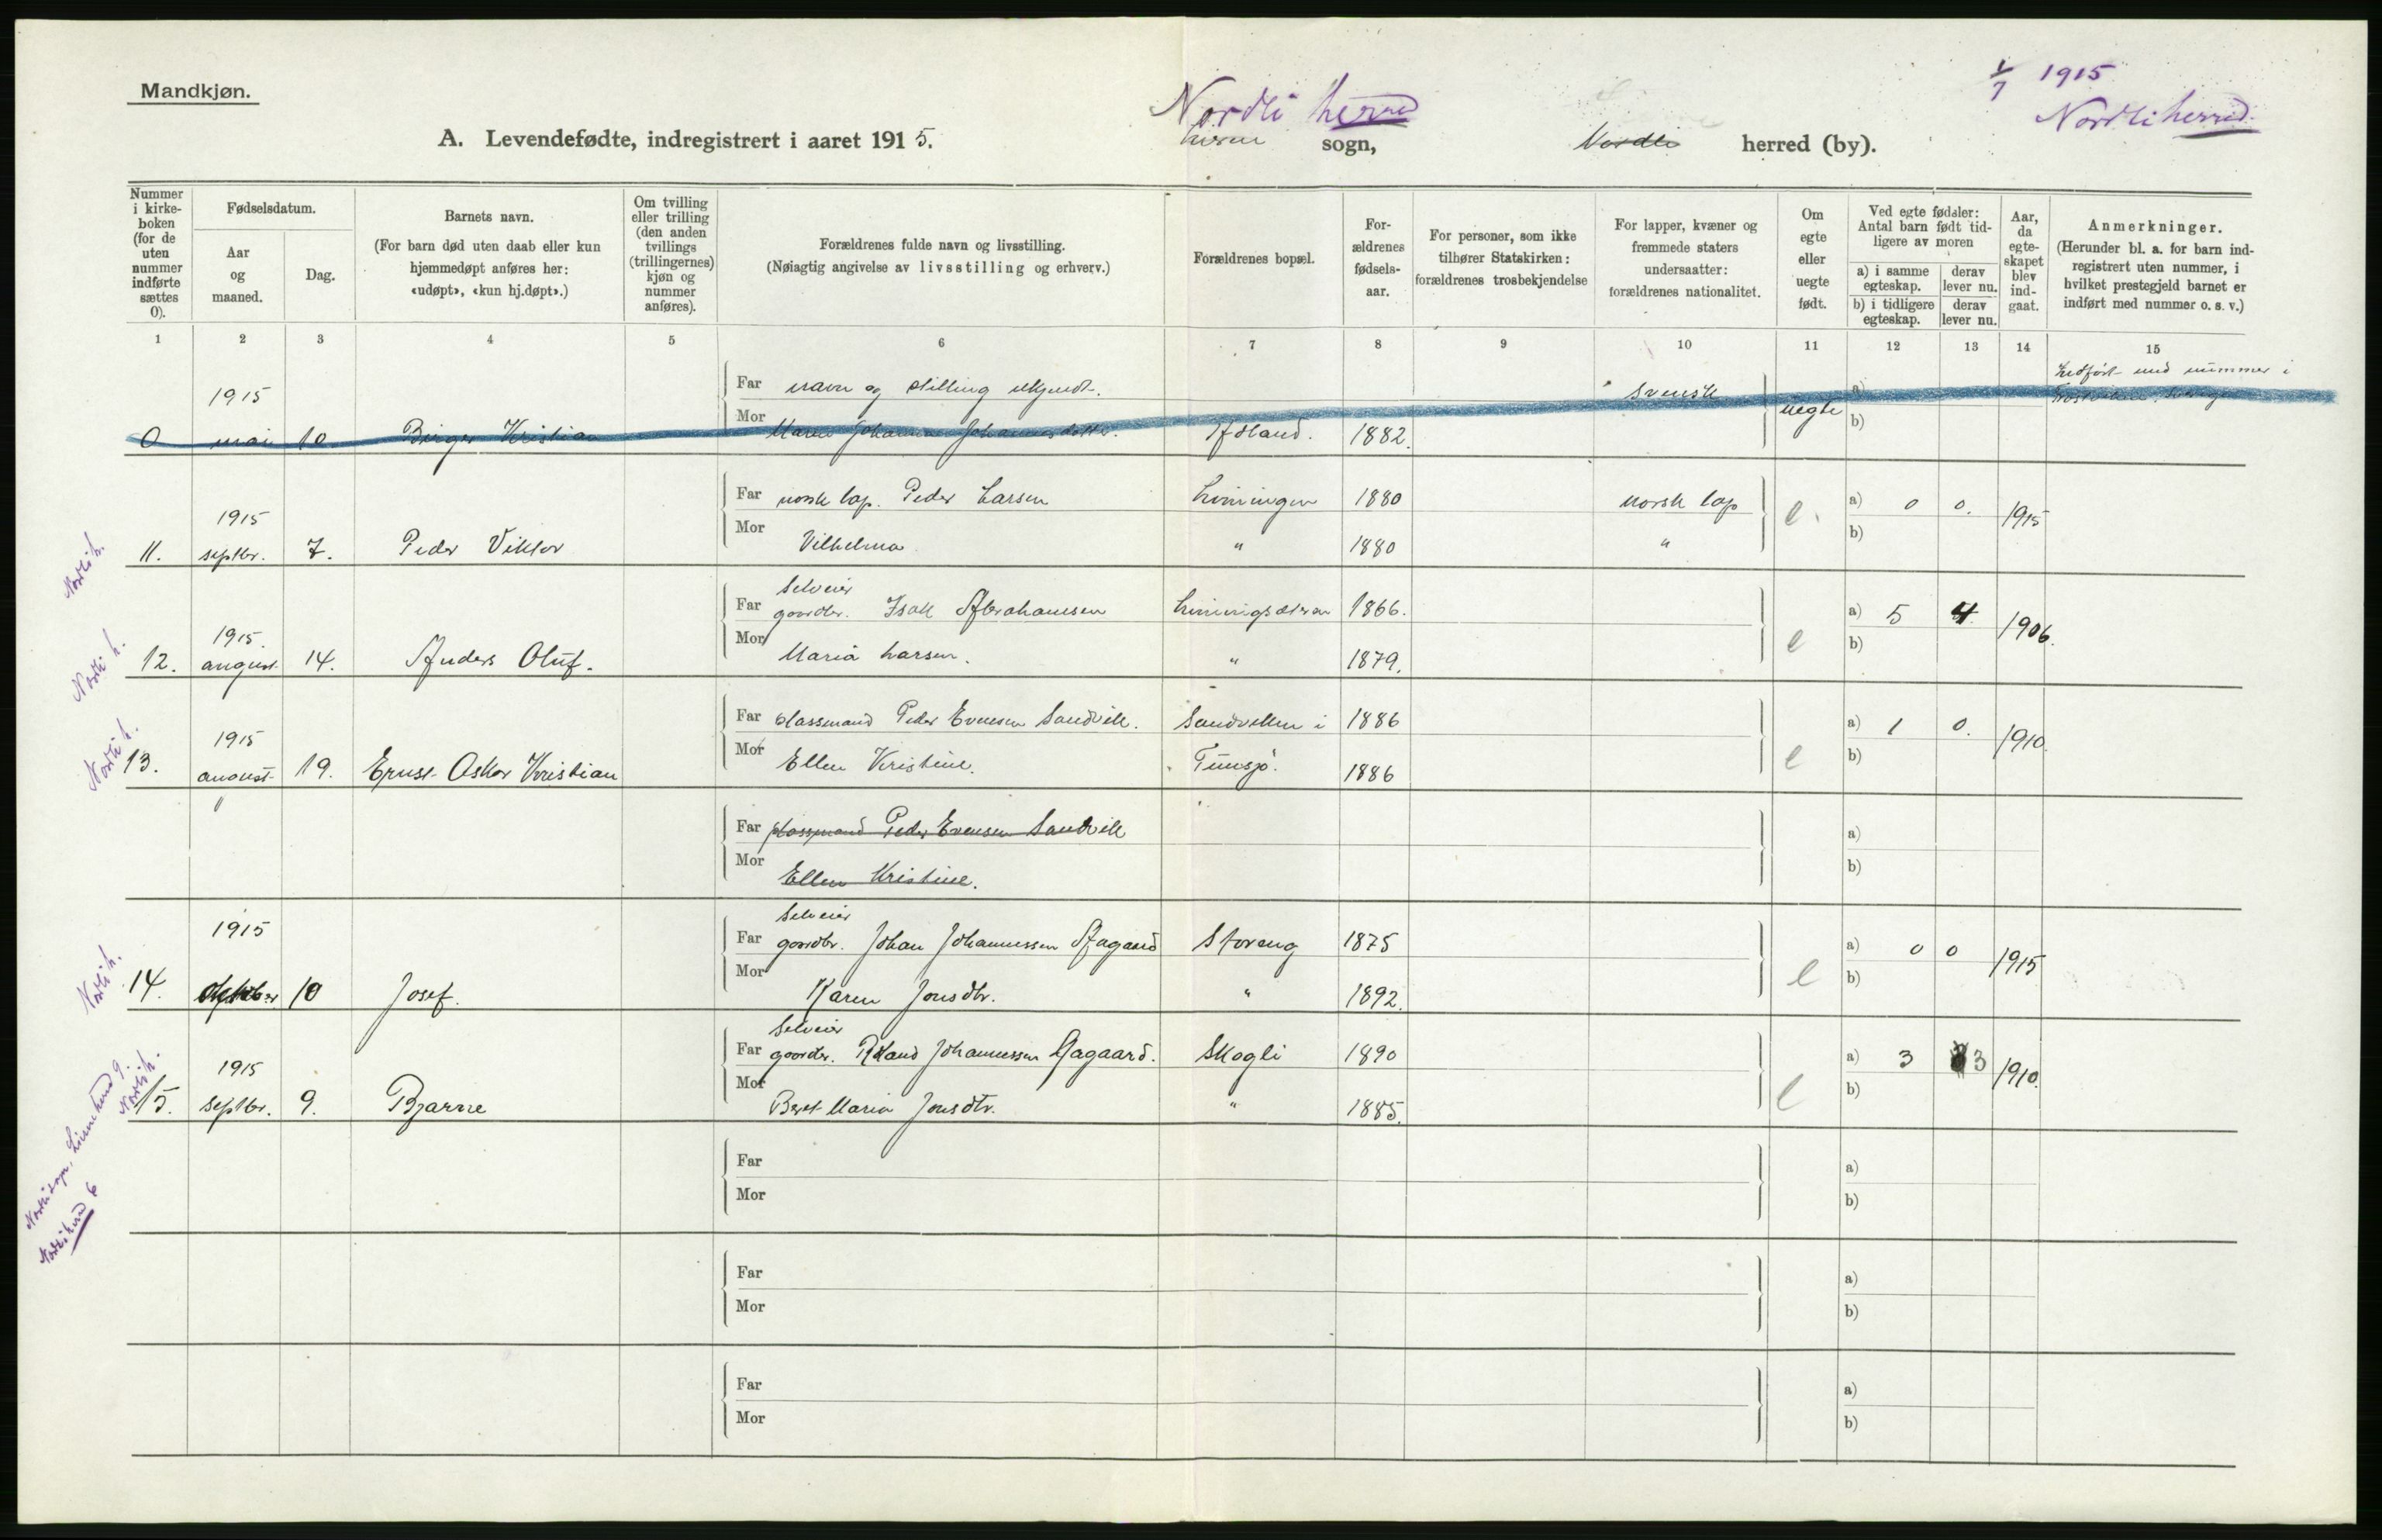 Mandkjøn.
A. Levendefødte, indregistrert i aaret 1915.
Nordli herred
Lierne sogn,
Nordli herred (by).
1/7 1915
Nordli herred.
Nummer i kirkeboken (for de uten nummer indførte sættes 0).
Fødselsdatum.
Aar og maaned.
Dag.
Barnets navn.
(For barn død uten daab eller kun hjemmedøpt anføres her: «udøpt», «kun hj.døpt».)
Om tvilling eller trilling (den anden tvillings (trillingernes) kjøn og nummer anføres).
Forældrenes fulde navn og livsstilling.
(Nøiagtig angivelse av livsstilling og erhverv.)
Forældrenes bopæl.
Forældrenes fødselsaar.
For personer, som ikke tilhører Statskirken: forældrenes trosbekjendelse
For lapper, kvæner og fremmede staters undersaatter: forældrenes nationalitet.
Om egte eller uegte født.
Ved egte fødsler: Antal barn født tidligere av moren
a) i samme egteskap.
derav lever nu.
b) i tidligere egteskap.
derav lever nu.
Aar, da egteskapet blev indgaat.
Anmerkninger.
(Herunder bl. a. for barn indregistrert uten nummer, i hvilket prestegjeld barnet er indført med nummer o. s. v.)
1 2 3 4 5 6 7 8 9 10 11 12 13 14 15
1915 Far navn og stilling ukjendt. svensk a) Indført med nummer i
0 mai 10 Birger Kristian Mor Maren Johanna Johannesdotter. 1882. uegte b)
Far norsk lap. Peder Larsen Kvinningen 1880 norsk lap a) 0 0. 1915
Nordli h. 11. 1915 septbr. 7. Peder Viktor Mor Vilhelmo " 1880 " e. b)
Selveier
Far gaardbr. Isak Abrahamsen 1866. a) 5 4 1906.
Nordli h. 12. 1915. august 14. Anders Oluf. Mor Maria Larsen. " 1879. e b)
Far plassmand Peder Evensen Sandvik. Sandviken i 1886 a) 1 0. 1910.
Nordli h. 13. 1915 august 19. Ernst Oskar Kristian Mor Ellen Kristine. Tunsjø. 1886 e b)
Far plassmand Peder Evensen Sandvik a)
Mor Ellen Kristine. b)
Selveier
Far gaardbr. Johan Johannessen Aagaard Storeng 1875 a) 0 0 1915
Nordli h. 14. 1915 oktober 10 Josef. Mor Karen Jonsdtr. " 1892. e b)
Selveier
Far gaardbr. Johannessen Aagaard. Skogli 1890 a) 3 3 1910.
Nordli h. 15. 1915 septbr. 9. Bjarne Mor Beret Maria Jonsdtr. " 1885. e b)
Nordli sogn, Lierne herred 9.
Nordli herred 6
Far a)
Mor b)
Far a)
Mor b)
Far a)
Mor b)